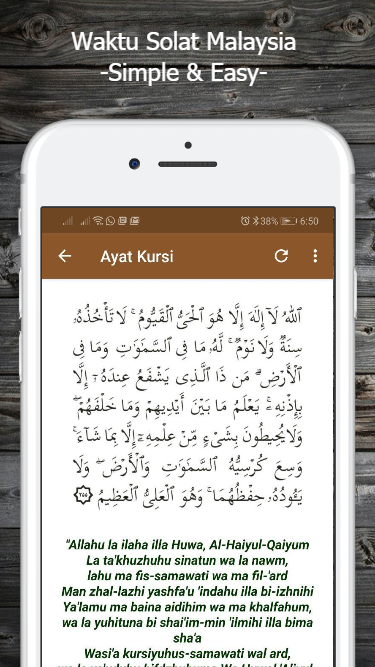 Waktu Solat Malaysia
-Simple & Easy-
38% 6:50
Ayat Kursi
ٱللَّهُ لَآ إِلَٰهَ إِلَّا هُوَ ٱلْحَىُّ ٱلْقَيُّومُ ۚ لَا تَأْخُذُهُۥ
سِنَةٌ وَلَا نَوْمٌ ۚ لَّهُۥ مَا فِى ٱلسَّمَٰوَٰتِ وَمَا فِى
ٱلْأَرْضِ ۗ مَن ذَا ٱلَّذِى يَشْفَعُ عِندَهُۥٓ إِلَّا
بِإِذْنِهِۦ ۚ يَعْلَمُ مَا بَيْنَ أَيْدِيهِمْ وَمَا خَلْفَهُمْ ۖ
وَلَا يُحِيطُونَ بِشَىْءٍ مِّنْ عِلْمِهِۦٓ إِلَّا بِمَا شَآءَ ۚ
وَسِعَ كُرْسِيُّهُ ٱلسَّمَٰوَٰتِ وَٱلْأَرْضَ ۖ وَلَا
يَـُٔودُهُۥ حِفْظُهُمَا ۚ وَهُوَ ٱلْعَلِىُّ ٱلْعَظِيمُ ٢٥٥
"Allahu la ilaha illa Huwa, Al-Haiyul-Qaiyum
La ta'khuzhuhu sinatun wa la nawm,
lahu ma fis-samawati wa ma fil-'ard
Man zhal-lazhi yashfa'u 'indahu illa bi-izhnihi
Ya'lamu ma baina aidihim wa ma khalfahum,
wa la yuhituna bi shai'im-min 'ilmihi illa bima
sha'a
Wasi'a kursiyuhus-samawati wal ard,